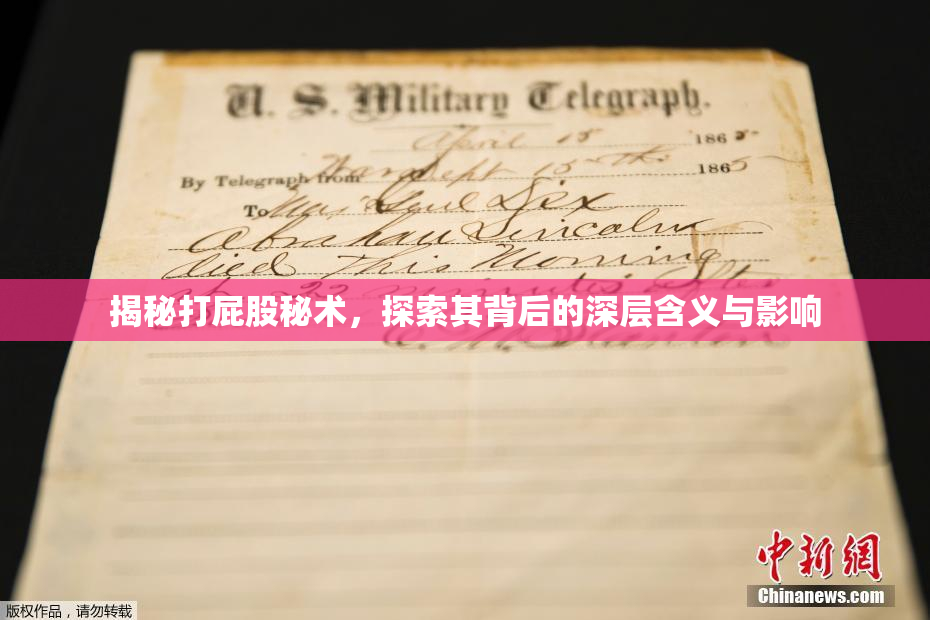 U. S. Military Telegraph.
April 15 1865
By Telegraph from War Dept 15th 1865
To Maj Genl Dix
Abraham Lincoln
died This Morning
at 22 minutes after
揭秘打屁股秘术，探索其背后的深层含义与影响
中新网
Chinanews.com
版权作品，请勿转载